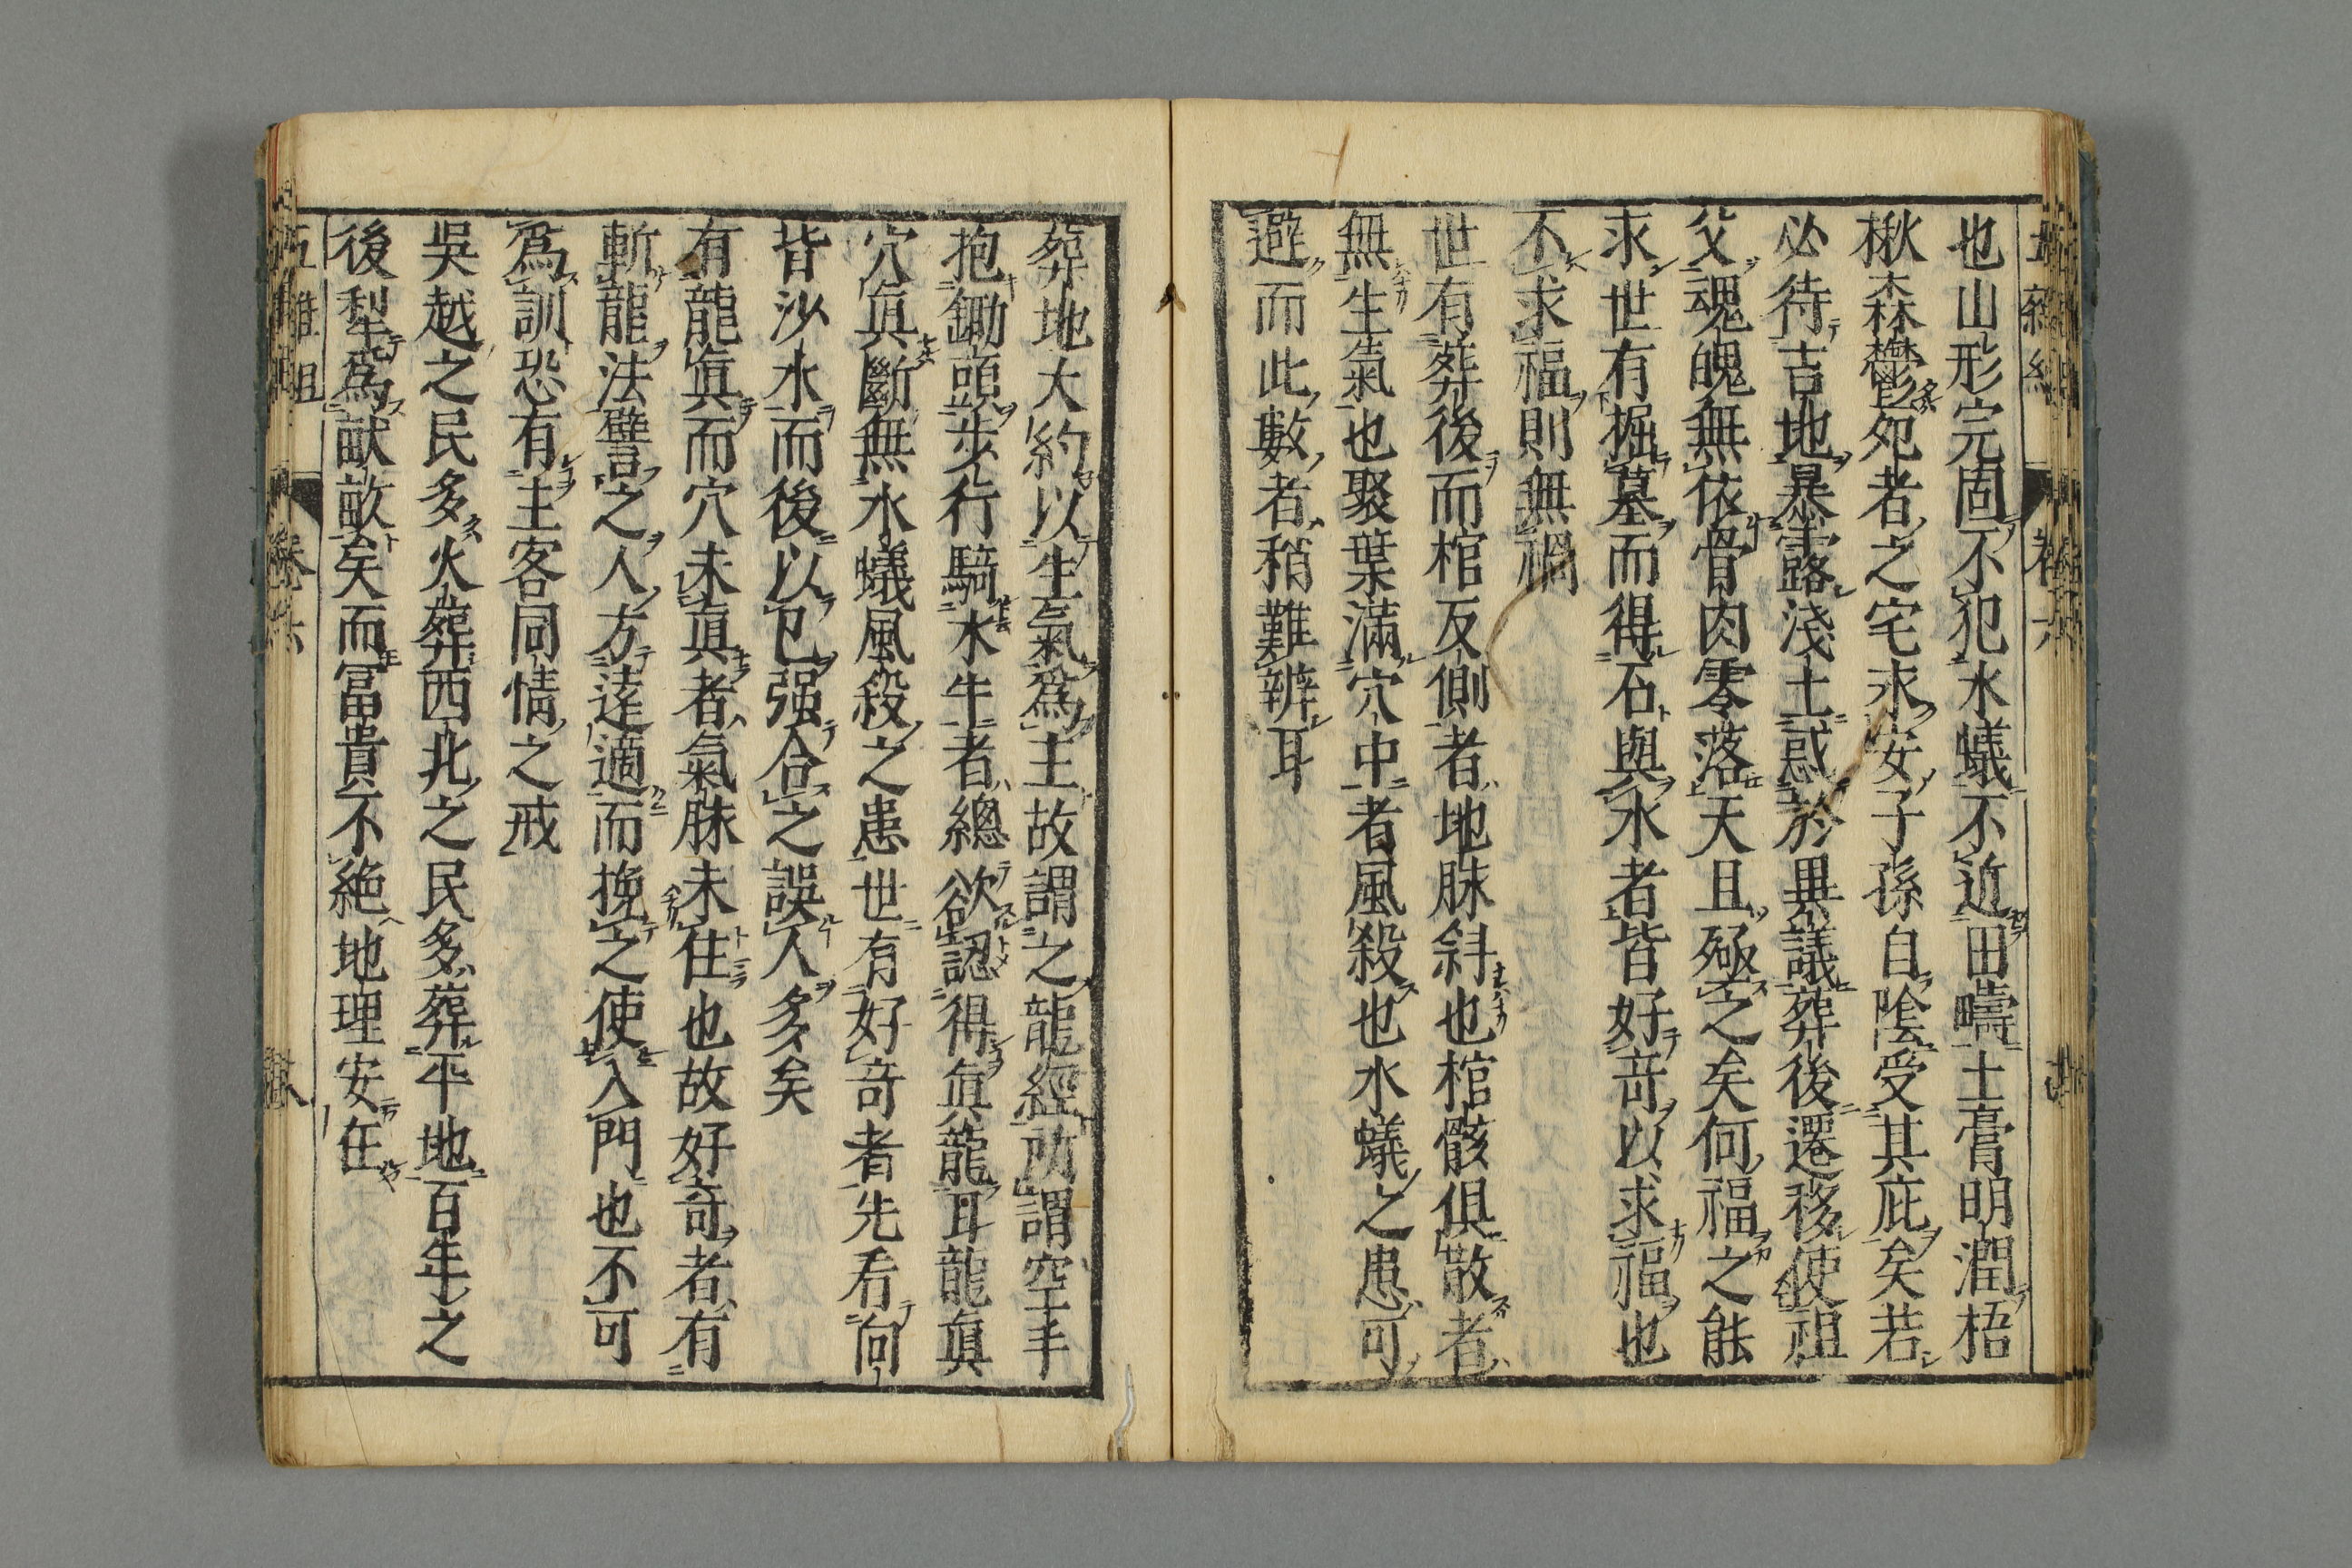 也山形完固不犯水蟻不近田疇土膏明潤梧
楸森欝鬯夗者之宅求安子孫自陰受其庇矣若
必待吉地暴露淺土惑於異議葬後遷移使祖
父魂魄無依骨肉零落天且殛之矣何福之能
求世有掘墓而得石與水者皆好竒以求福也
不求福則無禍
世有葬後而棺反側者地脉斜也棺骸俱散者
無生氣也聚葉滿穴中者風殺也水蟻之患可
避而此數者稍難辨耳
葬地大約以生氣爲主故謂之龍經所謂空手
抱鋤頭步行騎水牛者總欲認得眞龍耳龍眞
穴眞斷無水蟻風殺之患世有好竒者先看向
背沙水而後以巳强合之誤人多矣
有龍眞而穴未眞者氣脉未住也故好竒者有
斬龍法譬之人方遠適而挽之使入門也不可
爲訓恐有主客同情之戒
吳越之民多火葬西北之民多葬平地百年之
後犁爲畎畝矣而冨貴不絶地理安在
五雜俎
卷六